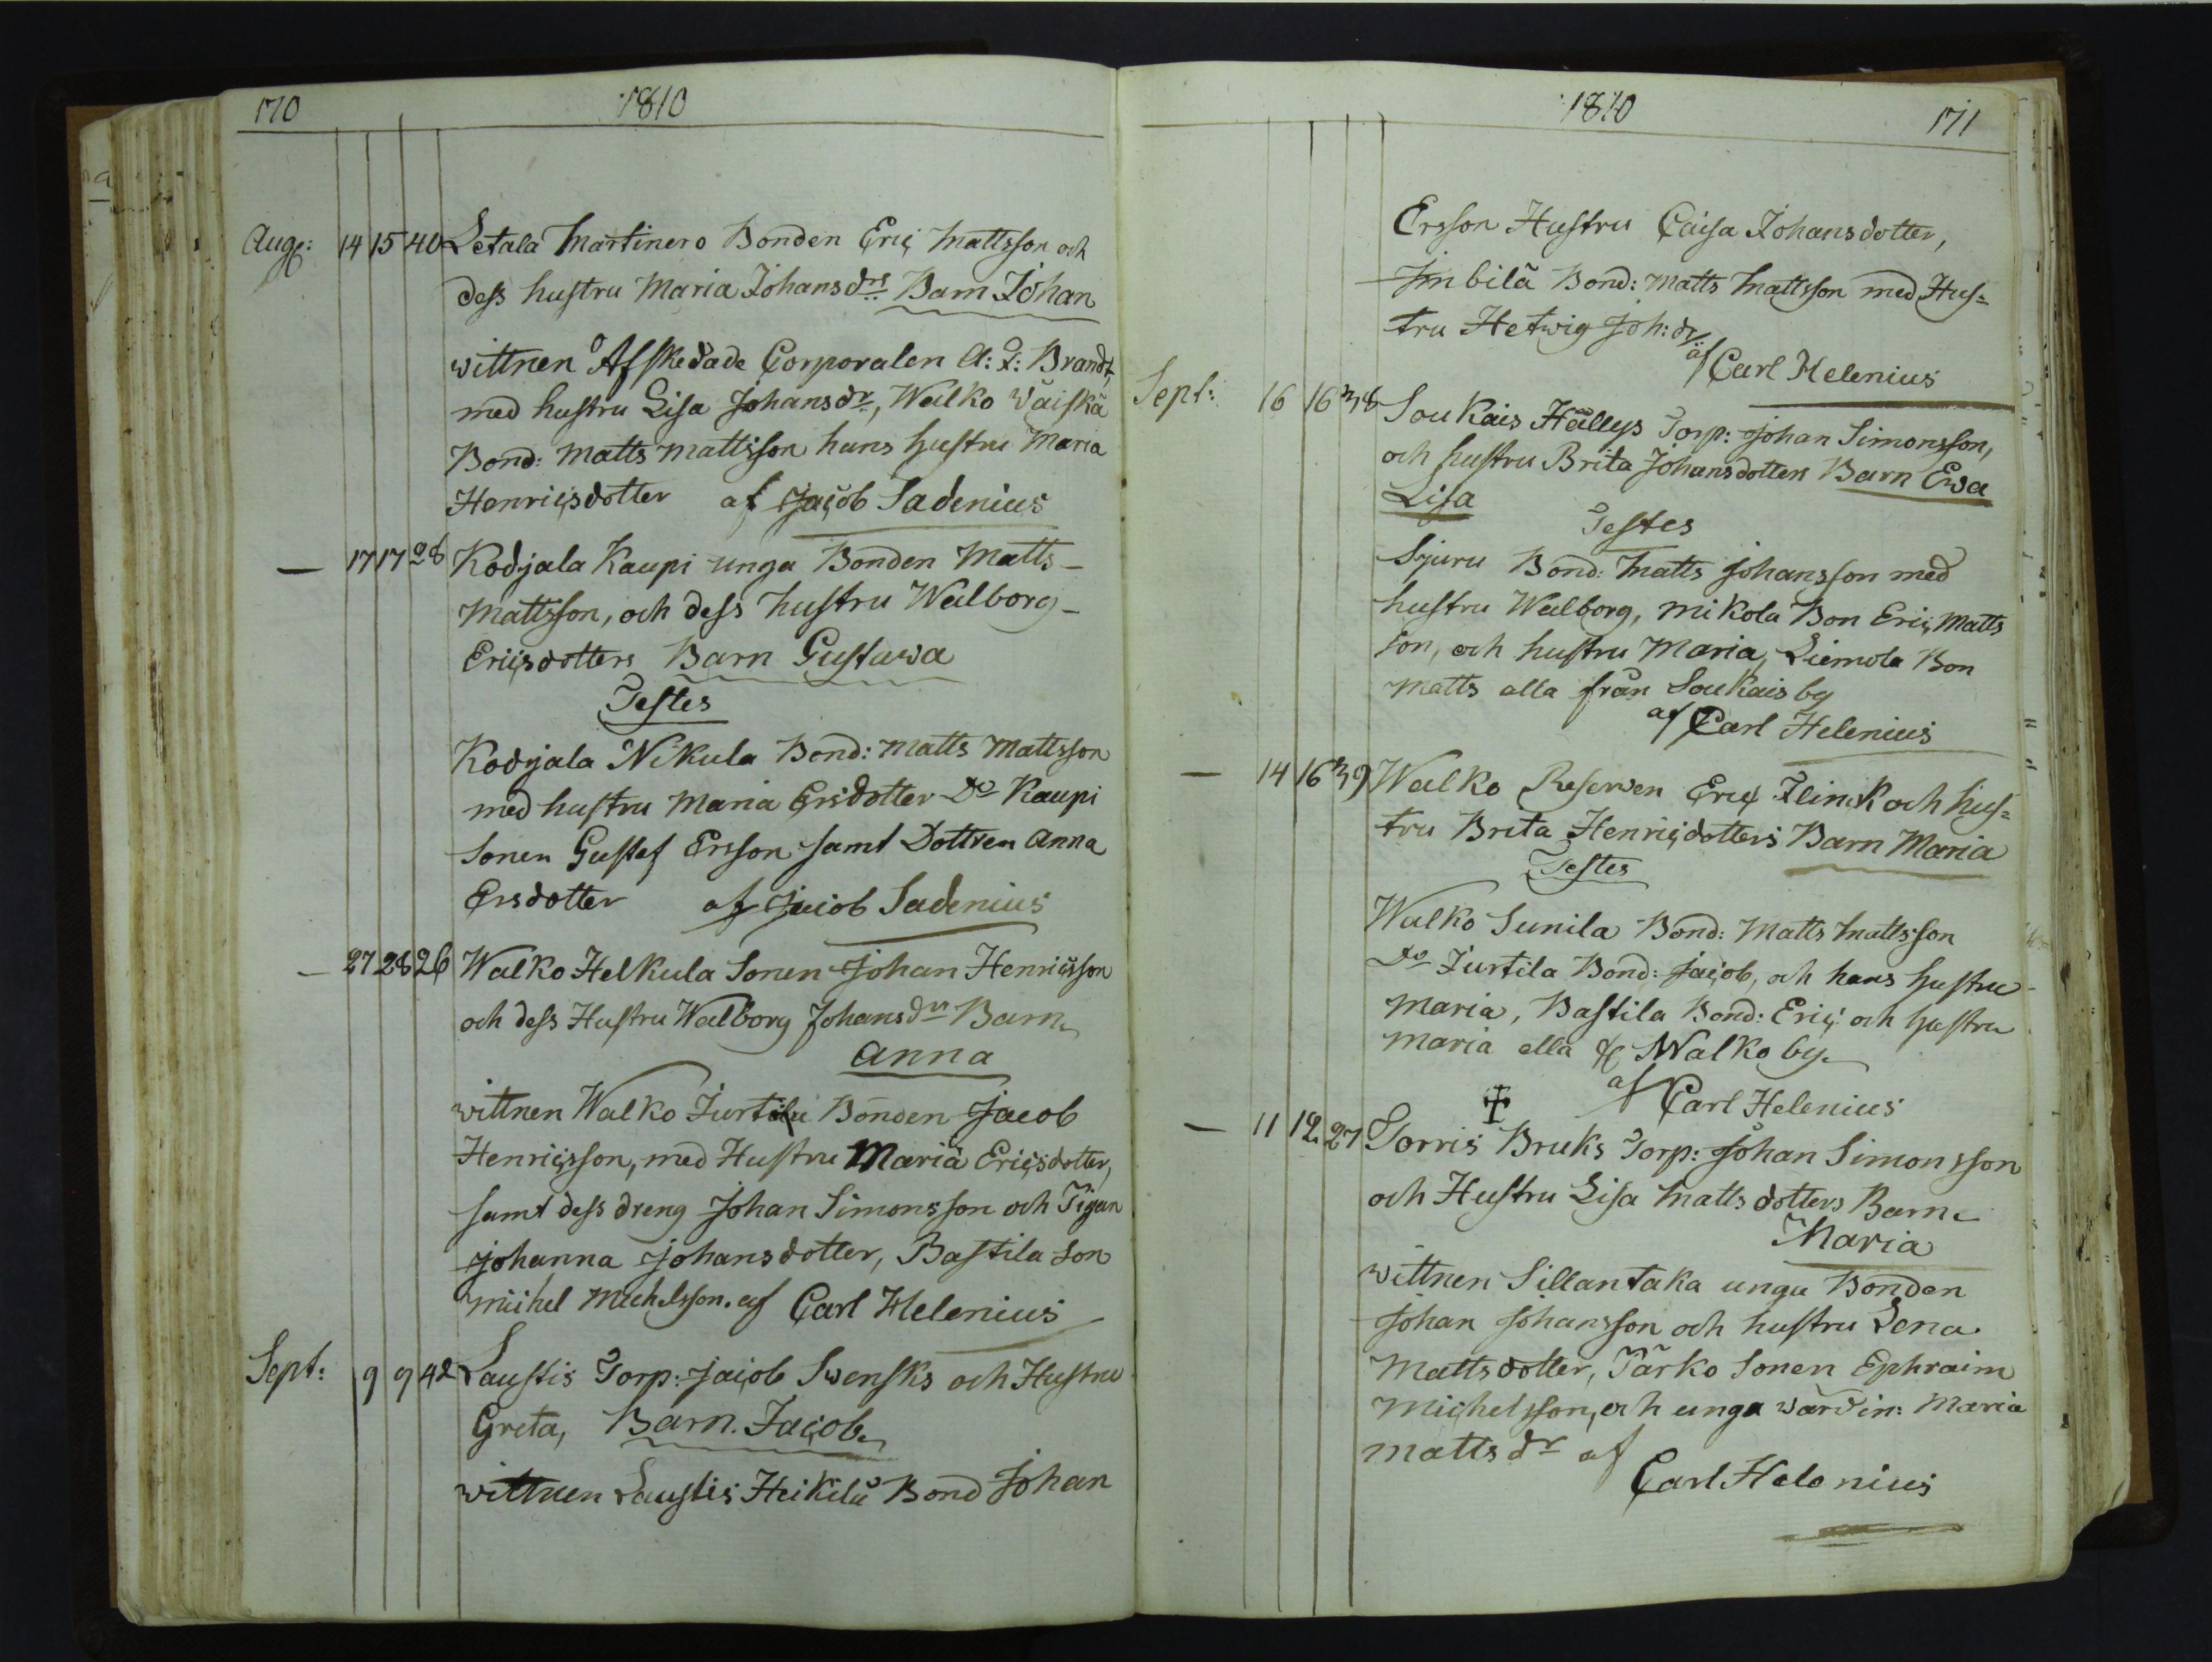 170 1810
Aug: 14 15 40 Letala Martinero Bonden Eric Mattsson och
dess hustru Maria Johansdrs Barn Johan
wittnen Afskedade Corporalen A: F: Brandt,
med hustru Lisa Johansdr, Walko Wäiskä
Bond: Matts Mattsson hans hustru Maria
Henricsdotter af Jacob Sadenius
— 17 17 28 Kodjala Kaupi unga Bonden Matts
Mattsson, och dess hustru Walborg
Ericsdotters Barn Gustawa
Testes
Kodjala Nikula Bond: Matts Mattsson
med hustru Maria Ersdotter Do Kaupi
Sonen Gustaf Ersson samt Dottren Anna
Ersdotter af Jacob Sadenius
— 27 28 26 Walko Helkula Sonen Johan Henricsson
och dess Hustru Walborg Johansdrs Barn
Anna
wittnen Walko Jurtila Bonden Jacob
Henricsson, med Hustru Maria Ericsdotter,
samt dess dreng Johan Simonsson och Pigan
Johanna Johansdotter, Bastila Son
Michel Michelsson. af Carl Helenius
Sept: 9 9 42 Laustis Torp: Jacob Swensks och Hustru
Greta, Barn. Jacob
wittnen Laustis Heikilä Bond Johan
1810 171
Ersson Hustru Caisa Johansdotter,
Bond: Matts Mattsson med Hus=
tru Hetwig Joh: dr:
af Carl Helenius
Sept: 16 16 38 Soukais Hällys Torp: Johan Simonsson,
och hustru Brita Johansdotters Barn Ewa
Lisa
Testes
Sjuru Bond: Matts Johansson med
hustru Walborg, Mikola Bon Eric Matts
son, och hustru Maria, Liemola Bon
Matts alla från Soukais by
af Carl Helenius
— 14 16 39 Walko Reserven Eric Flinck och hus=
tru Brita Henricsdotters Barn Maria
Testes
Walko Sunila Bond: Matts Mattsson
Do Jurtila Bond: Jacob, och hans hustru
Maria, Bastila Bond: Eric och hustru
Maria alla Walko by.
af Carl Helenius
— 11 12 27 Torris Bruks Torp: Johan Simonsson
och Hustru Lisa Mattsdotters Barn
Maria
wittnen Sillantaka unga Bonden
Johan Johansson och hustru Lena
Mattsdotter, Pärko Sonen Ephraim
Michelsson, och unga wärdin: Maria
Mattsdr af
Carl Helenius